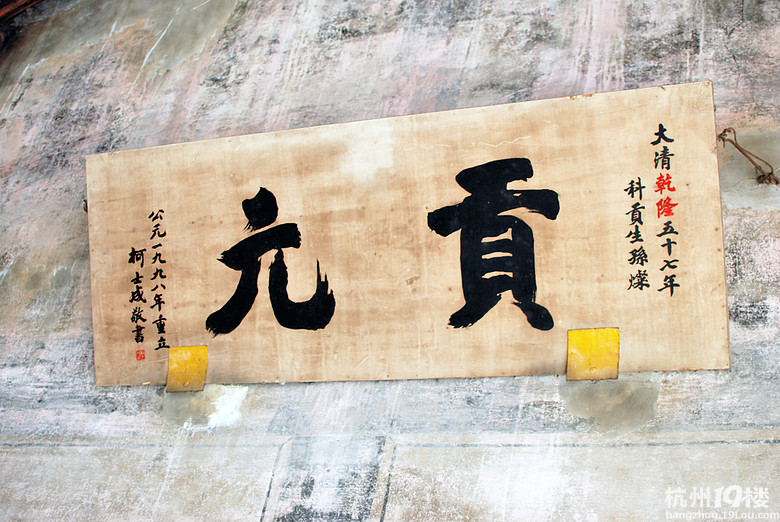 大清乾隆五十七年
科貢生孫燦
貢元
公元一九九八年重立
柯士成敬書
杭州19楼
hangzhou.19lou.com